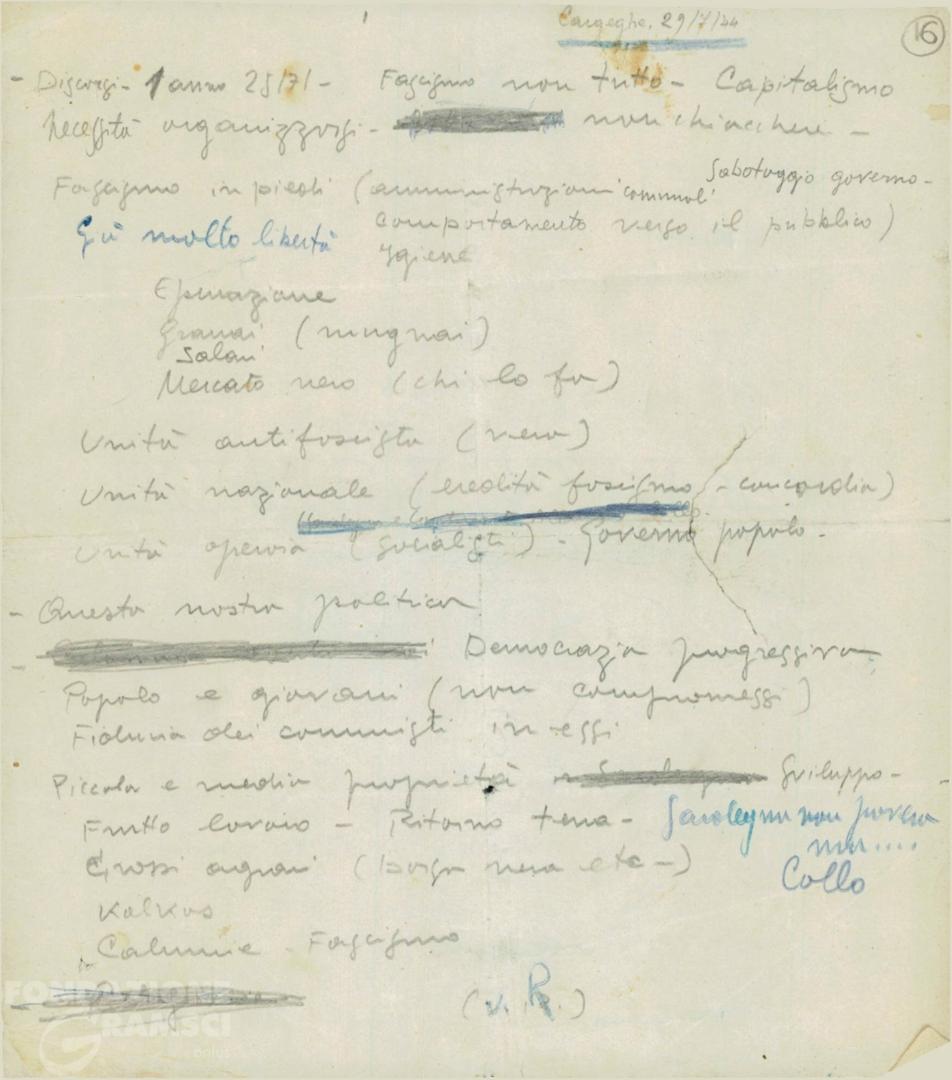 Cargeghe, 29/7/44
16
- Discorsi - 1 anno 25/7/ - Fascismo non tutto - Capitalismo
Necessità organizzarsi - non chiacchere -
Sabotaggio governo -
Fascismo in piedi (amministrazioni comunali
comportamento verso il pubblico)
Già molto libertà
Igiene
Epurazione
Granai (mugnai)
Salari
Mercato nero (chi lo fa)
Unità antifascista (vera)
Unità nazionale (eredità fascismo - concordia)
Unità operaia (socialisti) - Governo popolo -
- Questa nostra politica
- Democrazia progressiva
Popolo e giovani (non compromessi)
Fiducia dei comunisti in essi
Piccola e media proprietà Sviluppo -
Frutto lavoro - Ritorno terra - Sardegna non povera
ma....
Grossi agrari (borsa nera etc -)
Collo
Kolkos
Calunnie - Fascismo
(v. R.)
FONDAZIONE
GRAMSCI
onlus